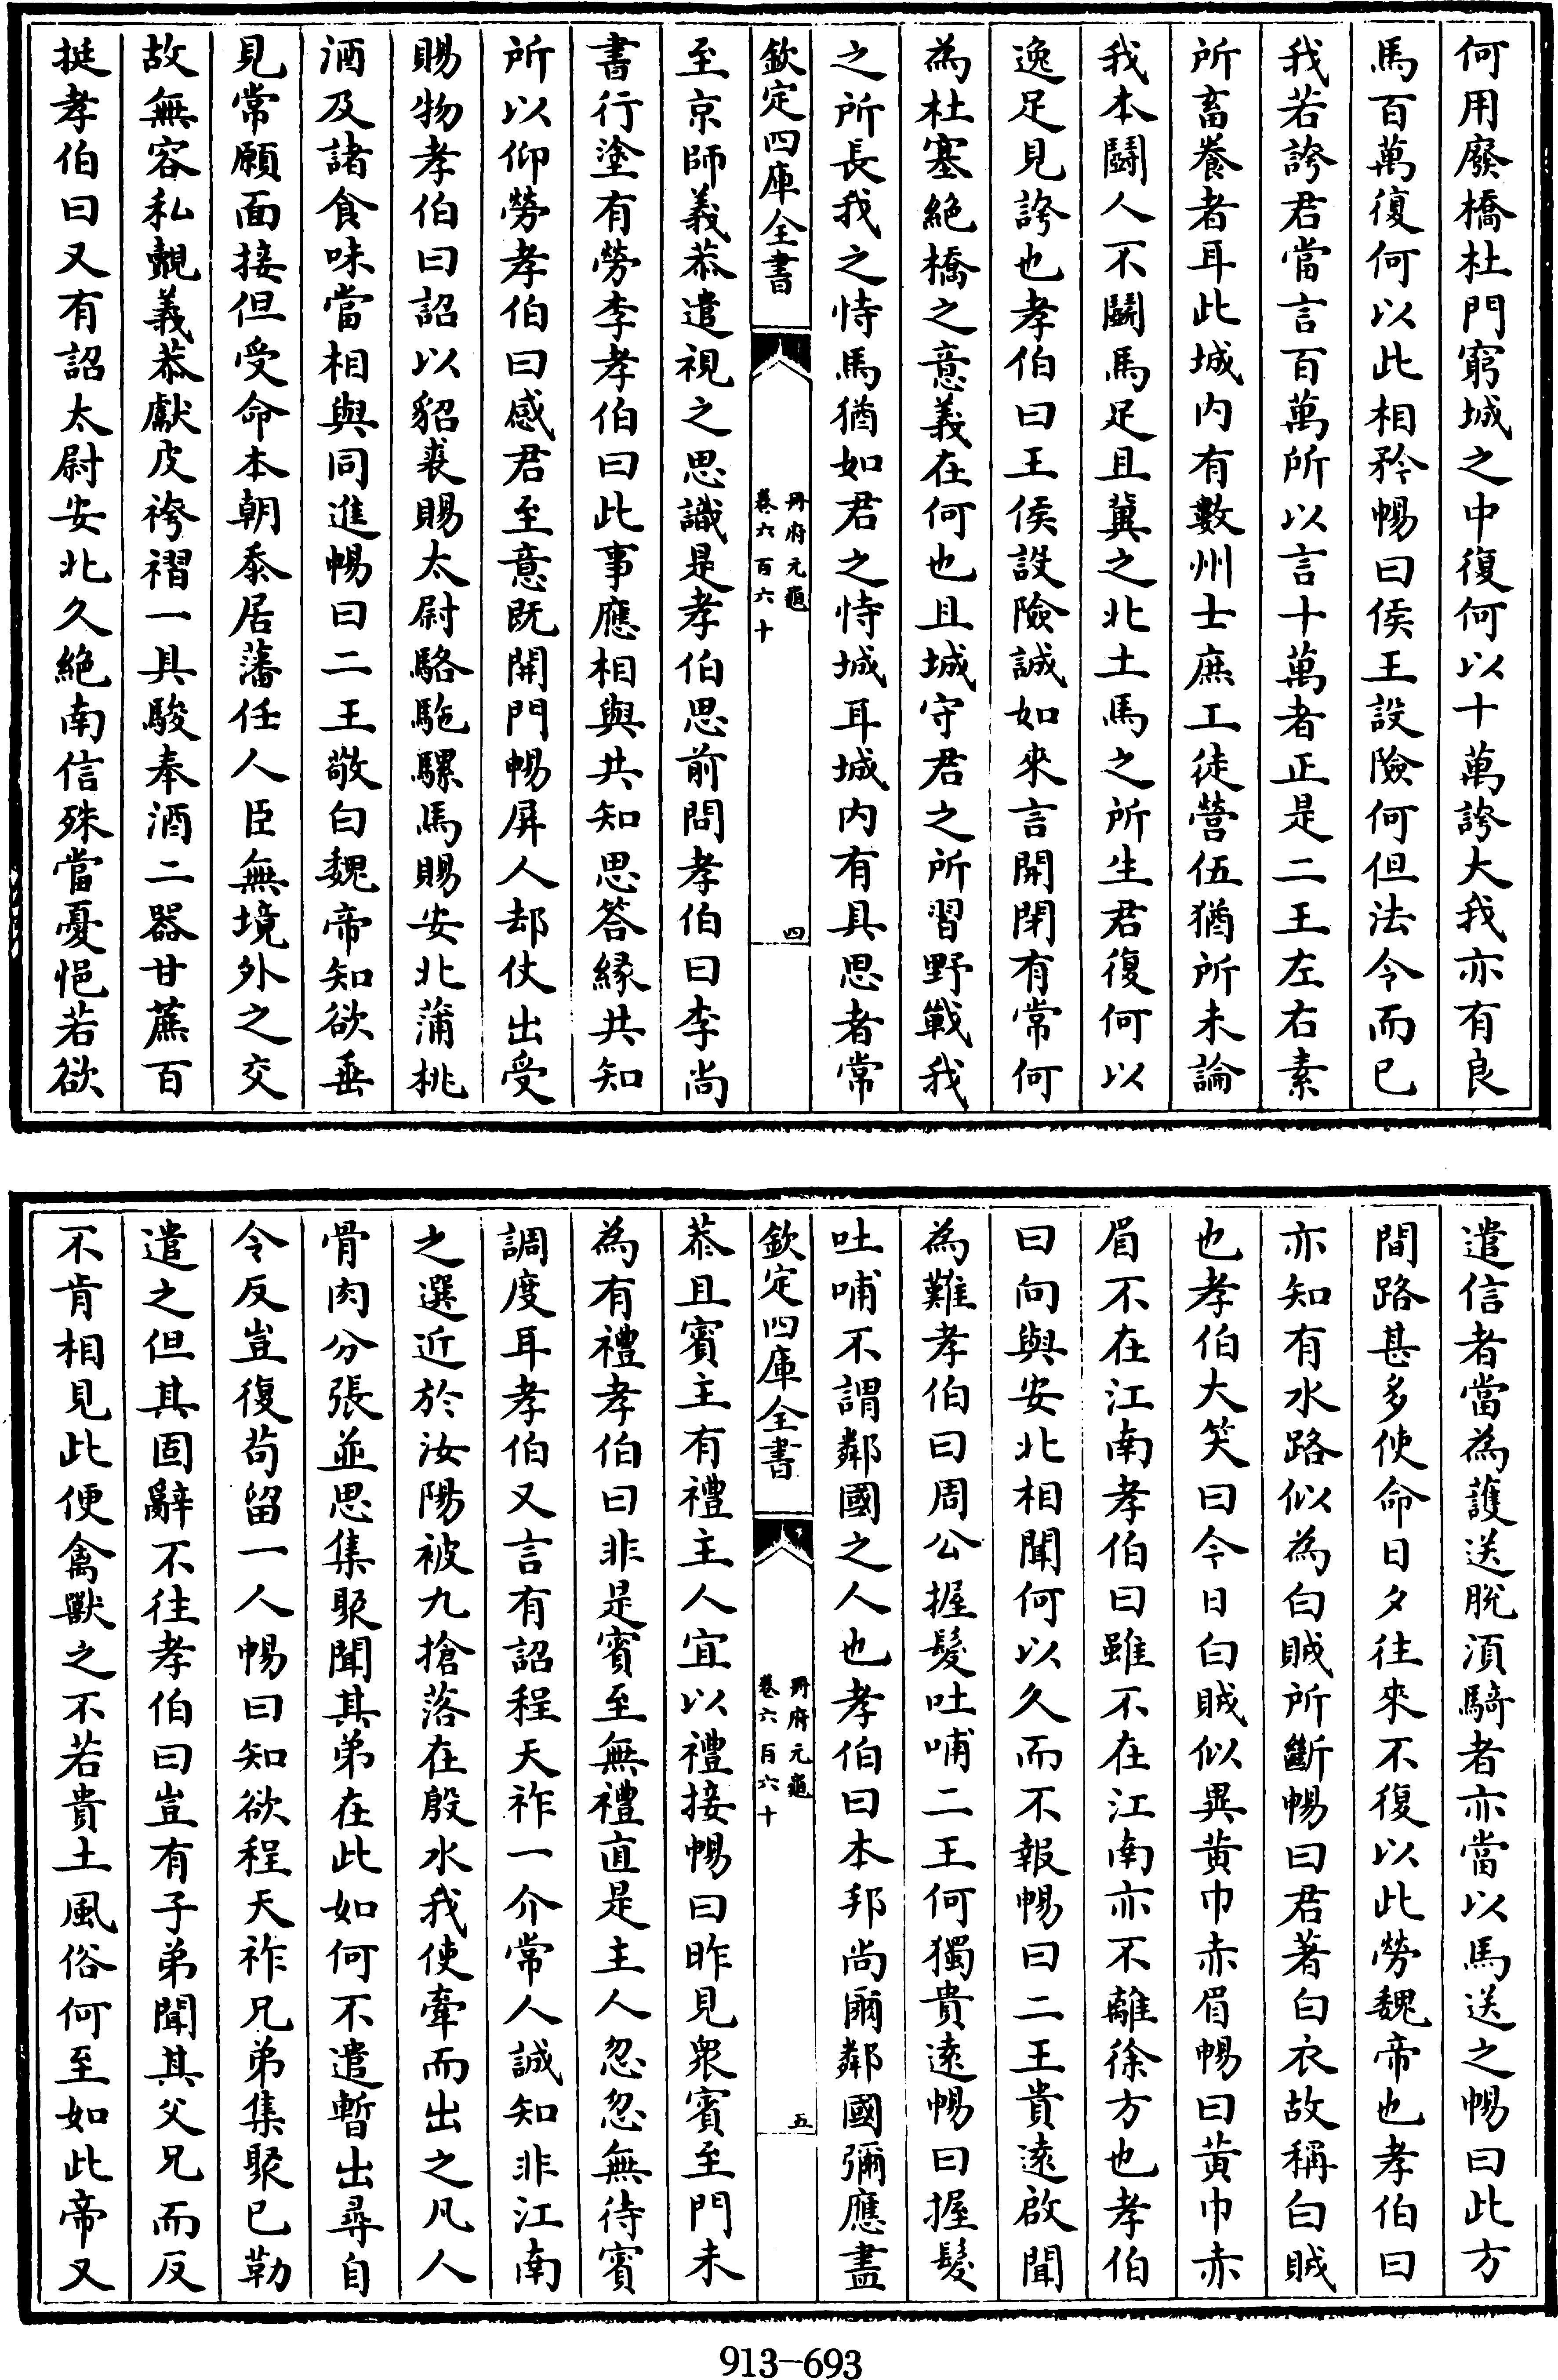 何用廢橋杜門窮城之中復何以十萬誇大我亦有良
馬百萬復何以此相矜暢曰侯王設險何但法令而已
我若誇君當言百萬所以言十萬者正是二王左右素
所畜養者耳此城内有數州士庶工徒營伍猶所未論
我本鬬人不鬬馬足且冀之北土馬之所生君復何以
逸足見誇也孝伯曰王侯設險誠如來言開閉有常何
為杜塞絶橋之意義在何也且城守君之所習野戰我
之所長我之恃馬猶如君之恃城耳城内有具思者常
欽定四庫全書
冊府元龜
卷六百六十
四
至京師義恭遣視之思識是孝伯思前問孝伯曰李尚
書行塗有勞李孝伯曰此事應相與共知思答緣共知
所以仰勞孝伯曰感君至意既開門暢屏人却仗出受
賜物孝伯曰詔以貂裘賜太尉駱駞騾馬賜安北蒲桃
酒及諸食味當相與同進暢曰二王敬白魏帝知欲垂
見常願面接但受命本朝忝居藩任人臣無境外之交
故無容私覿義恭獻皮袴褶一具駿奉酒二器甘蔗百
挺孝伯曰又有詔太尉安北久絶南信殊當憂悒若欲
遣信者當為護送脫湏騎者亦當以馬送之暢曰此方
間路甚多使命日夕往來不復以此勞魏帝也孝伯曰
亦知有水路似為白賊所斷暢曰君著白衣故稱白賊
也孝伯大笑曰今日白賊似異黄巾赤眉暢曰黄巾赤
眉不在江南孝伯曰雖不在江南亦不離徐方也孝伯
曰向與安北相聞何以久而不報暢曰二王貴遠啟聞
為難孝伯曰周公握髮吐哺二王何獨貴遠暢曰握髮
吐哺不謂鄰國之人也孝伯曰本邦尚爾鄰國彌應盡
欽定四庫全書
冊府元龜
卷六百六十
五
恭且賓主有禮主人宜以禮接暢曰昨見衆賓至門未
為有禮孝伯曰非是賓至無禮直是主人忽忽無待賓
調度耳孝伯又言有詔程天祚一介常人誠知非江南
之選近於汝陽被九搶落在殷水我使牽而出之凡人
骨肉分張並思集聚聞其弟在此如何不遣暫出尋自
令反豈復苟留一人暢曰知欲程天祚兄弟集聚已勒
遣之但其固辭不往孝伯曰豈有子弟聞其父兄而反
不肯相見此便禽獸之不若貴土風俗何至如此帝又
913-693